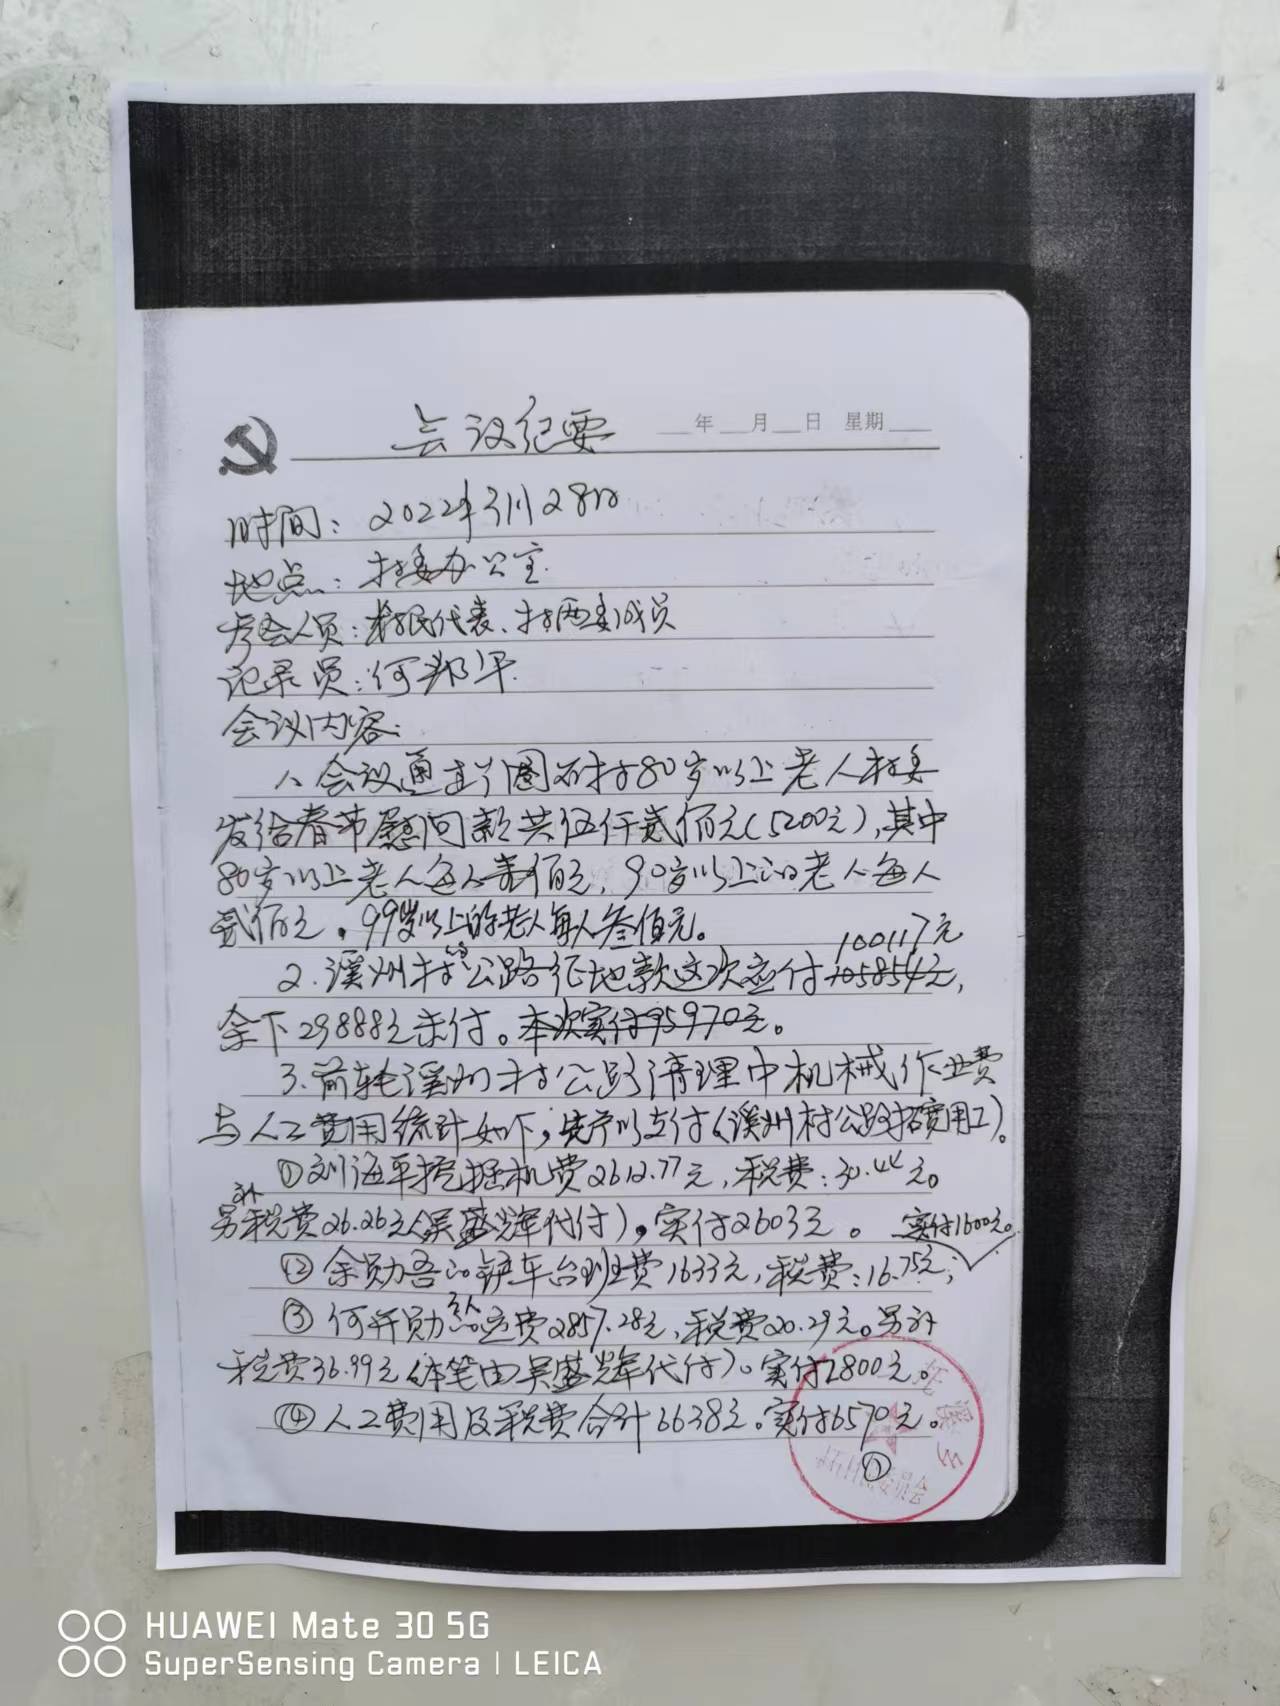 会议纪要
年 月 日 星期
时间：2022年3月28日
地点：村委办公室
参会人员：村民代表、村两委成员
记录员：何邦平
会议内容：
1、会议通过了圈石村80岁以上老人村委
发给春节慰问款共伍仟贰佰元(5200元),其中
80岁以上老人每人壹佰元,90岁以上的老人每人
贰佰元。99岁以上的老人每人叁佰元。
100117元
2.溪州村的公路征地款这次应付105854元,
余下29888元未付。本次实付95970元。
3.前轮溪州村公路清理中机械作业费
与人工费用统计如下,先予以支付(溪州村公路扩宽用工)。
①刘海平挖掘机费2612.77元,税费:30.44元。
另补税费26.26元(吴盛辉代付),实付2603元。 实付1600元。
②余勋吾的铲车台班费1633元,税费:16.75元;
③何开勋的运费2857.28元,税费20.29元。另补
税费36.99元(本笔由吴盛辉代付)。实付2800元。
④人工费用及税费合计6638元。实付6570元。
①
溪乡
委员会
HUAWEI Mate 30 5G
SuperSensing Camera | LEICA